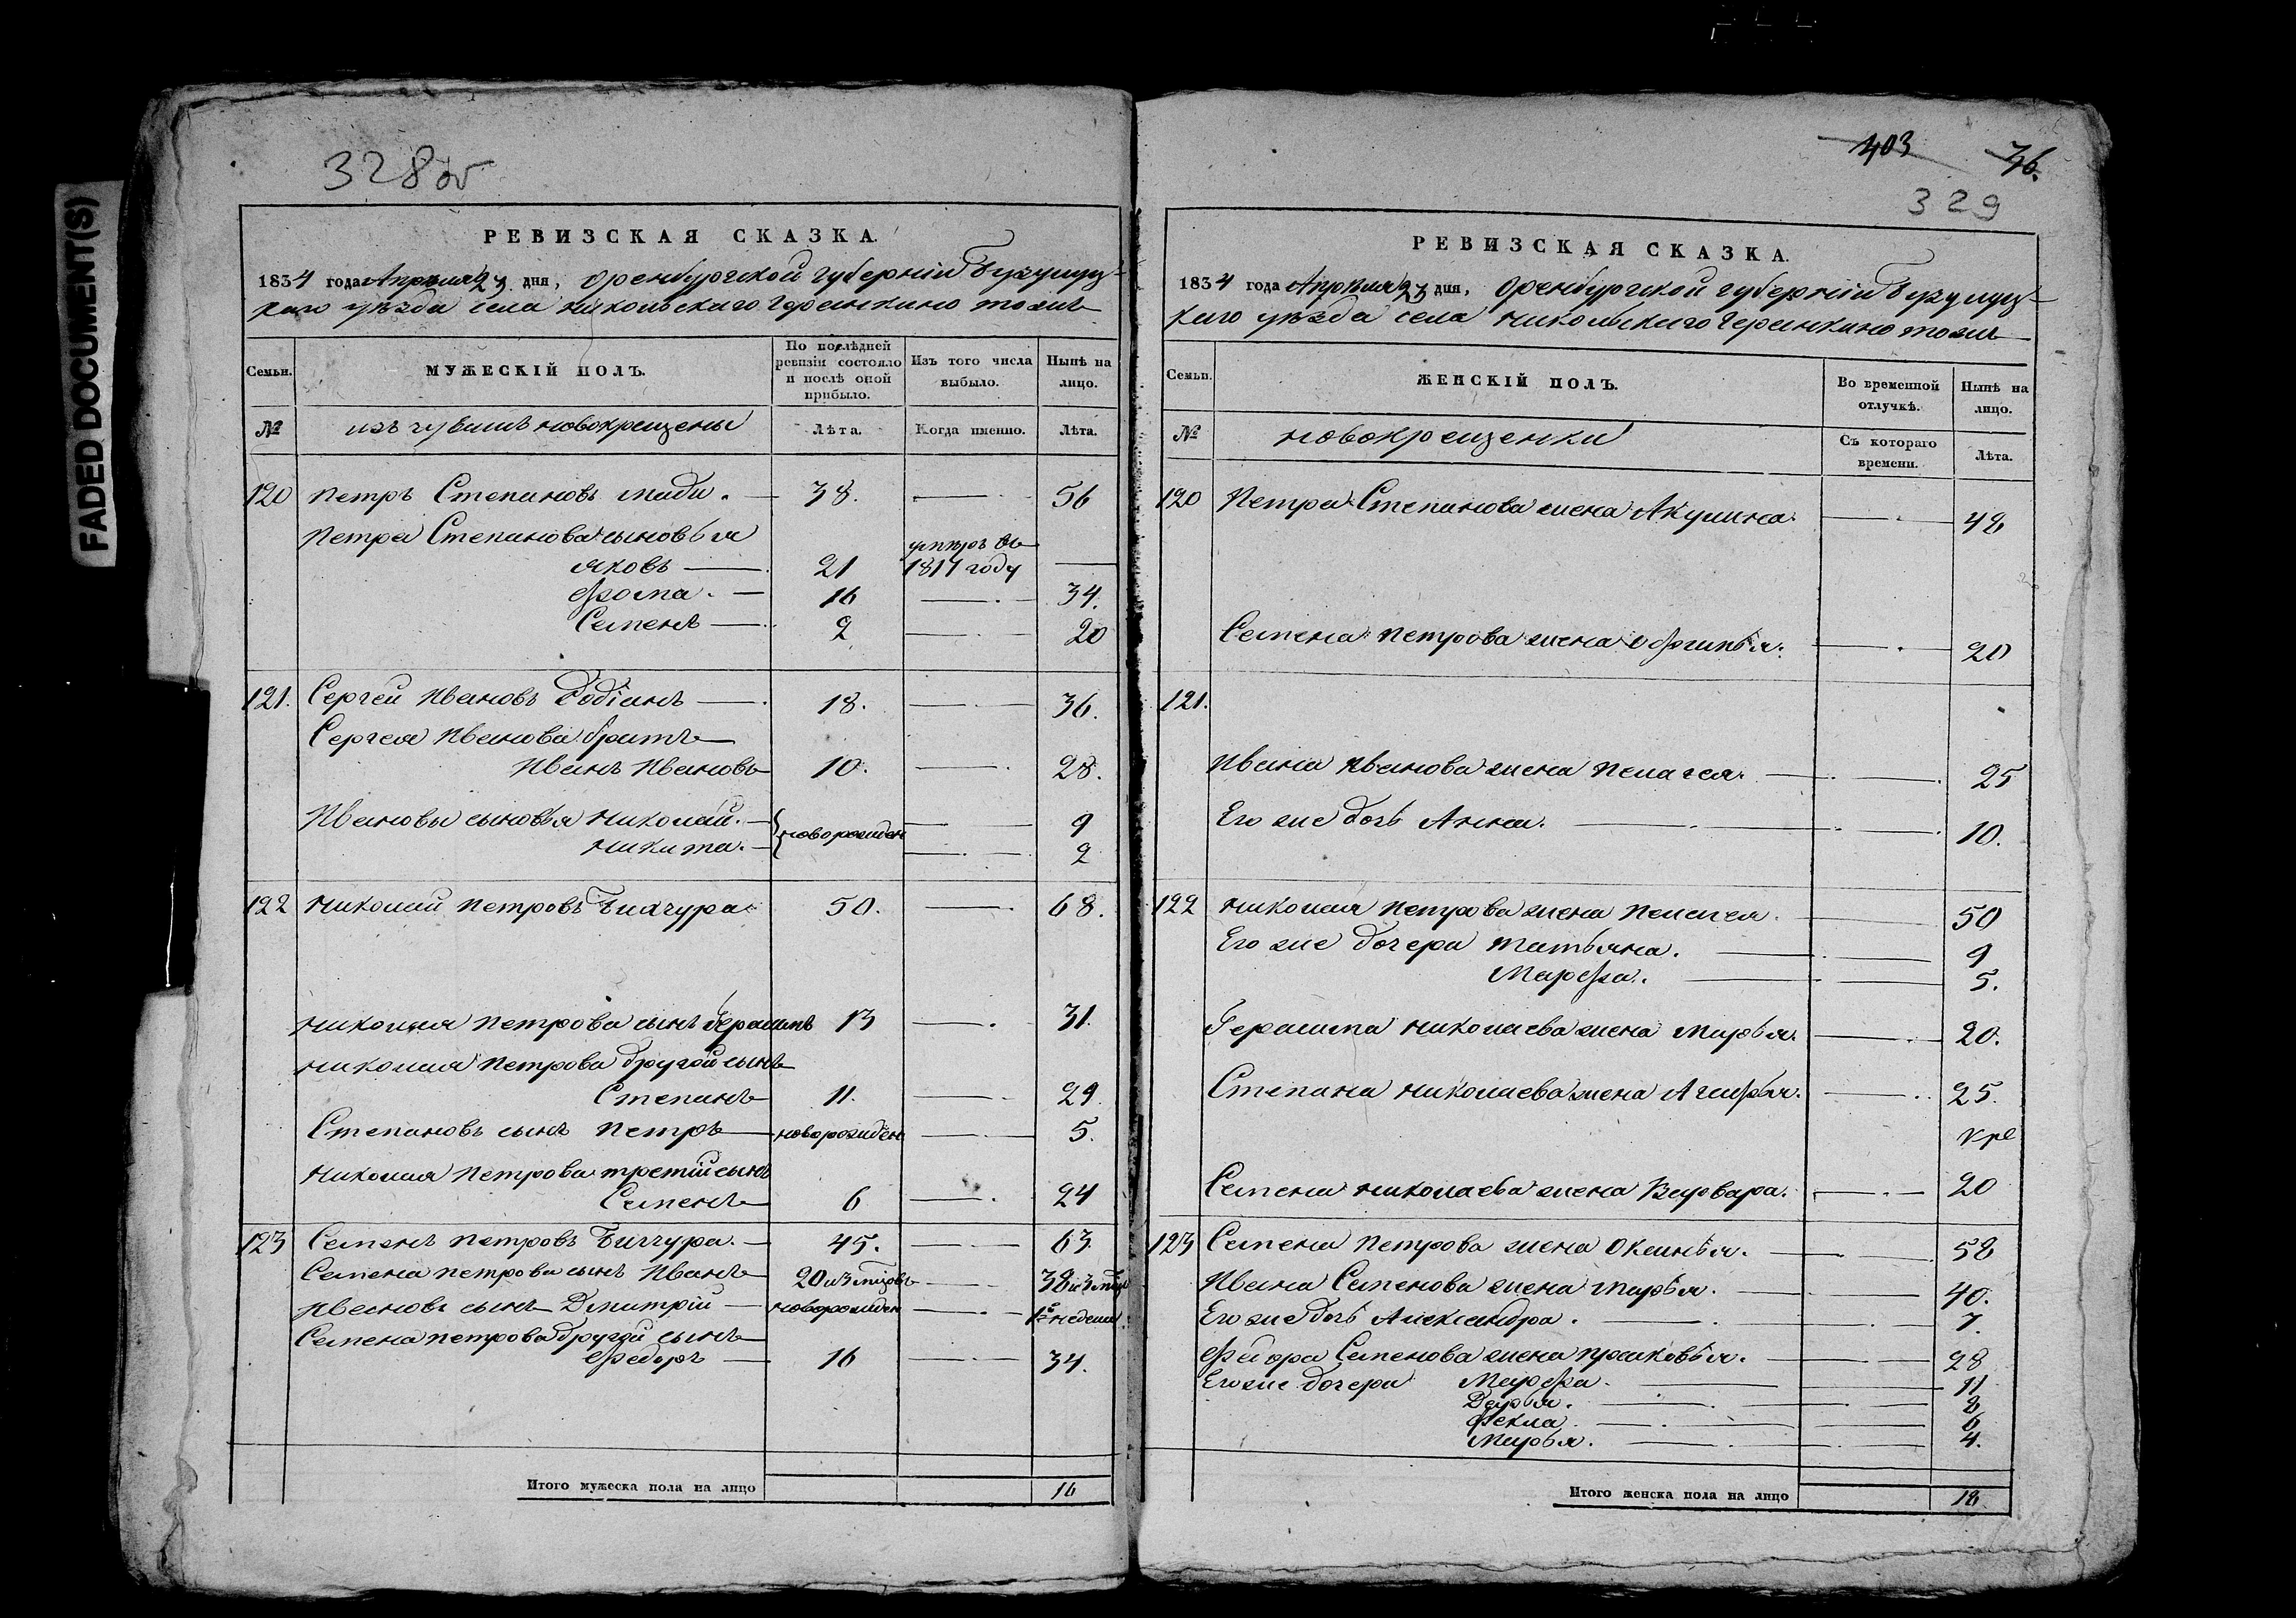 FADED DOCUMENT(S)
328об
РЕВИЗСКАЯ СКАЗКА.
1834 года Апреля 23 дня, Оренбургской губернии Бузулуц-
каго уѣзда села Никольскаго Черинкино тожъ
Семьи. МУЖЕСКІЙ ПОЛЪ. По послѣдней ревизіи состояло и послѣ оной прибыло. Изъ того числа выбыло. Нынѣ на лицо.
№ изъ чувашъ новокрещены Лѣта. Когда именно. Лѣта.
120 Петръ Степановъ 38. 56
Петра Степанова сыновья
Яковъ 21 умѣръ въ 1817 году
Фома. 16 34.
Семенъ 2 20
121. Сергей Ивановъ Родіанъ 18. 36.
Сергея Иванова братъ
Иванъ Ивановъ 10. 28.
Ивановы сыновья Николай. новорожден 9
Никита. 2
122 Николай Петровъ Бикчура 50. 68.
Николая Петрова сынъ Герасимъ 13 31.
Николая Петрова другой сынъ
Степанъ 11. 29
Степановъ сынъ Петръ новорождён 5.
Николая Петрова третій сынъ
Семенъ 6 24
123 Семенъ Петровъ Бикчура. 45. 63.
Семена Петрова сынъ Иванъ 20 и 3 мѣцовъ 38 и 3 мѣц
Ивановъ сынъ Дмитрій новорожден 1й недели
Семена Петрова другой сынъ
Федоръ 16 34.
Итого мужеска пола на лицо 16
403 36.
329
РЕВИЗСКАЯ СКАЗКА.
1834 года Апрѣля 23 дня, Оренбургской губерніи Бузулуц-
каго уѣзда села Никольскаго Черинкино тожъ
Семьи. ЖЕНСКІЙ ПОЛЪ. Во временной отлучкѣ. Нынѣ на лицо.
№ новокрещенки Съ котораго времени. Лѣта.
120 Петра Степанова жена Акулина. 48
Семена Петрова жена Офимья. 20
121.
Ивана Иванова жена Пелагея. 25
Его же дочь Анна. 10.
122 Николая Петрова жена Пелагея. 50
Его же дочери Татьяна. 9
Марфа. 5.
Герасима Николаева жена Марья. 20.
Степана Николаева жена Агафья. 25.
Семена Николаева жена Варвара. 20
123 Семена Петрова жена Оксинья. 58
Ивана Семенова жена Марья. 40.
Его же дочь Александра. 7.
Федора Семенова жена Прасковья. 28
Его же дочери Марфа. 11
Дарья. 8
Фекла. 6
Марья. 4.
Итого женска пола на лицо 18